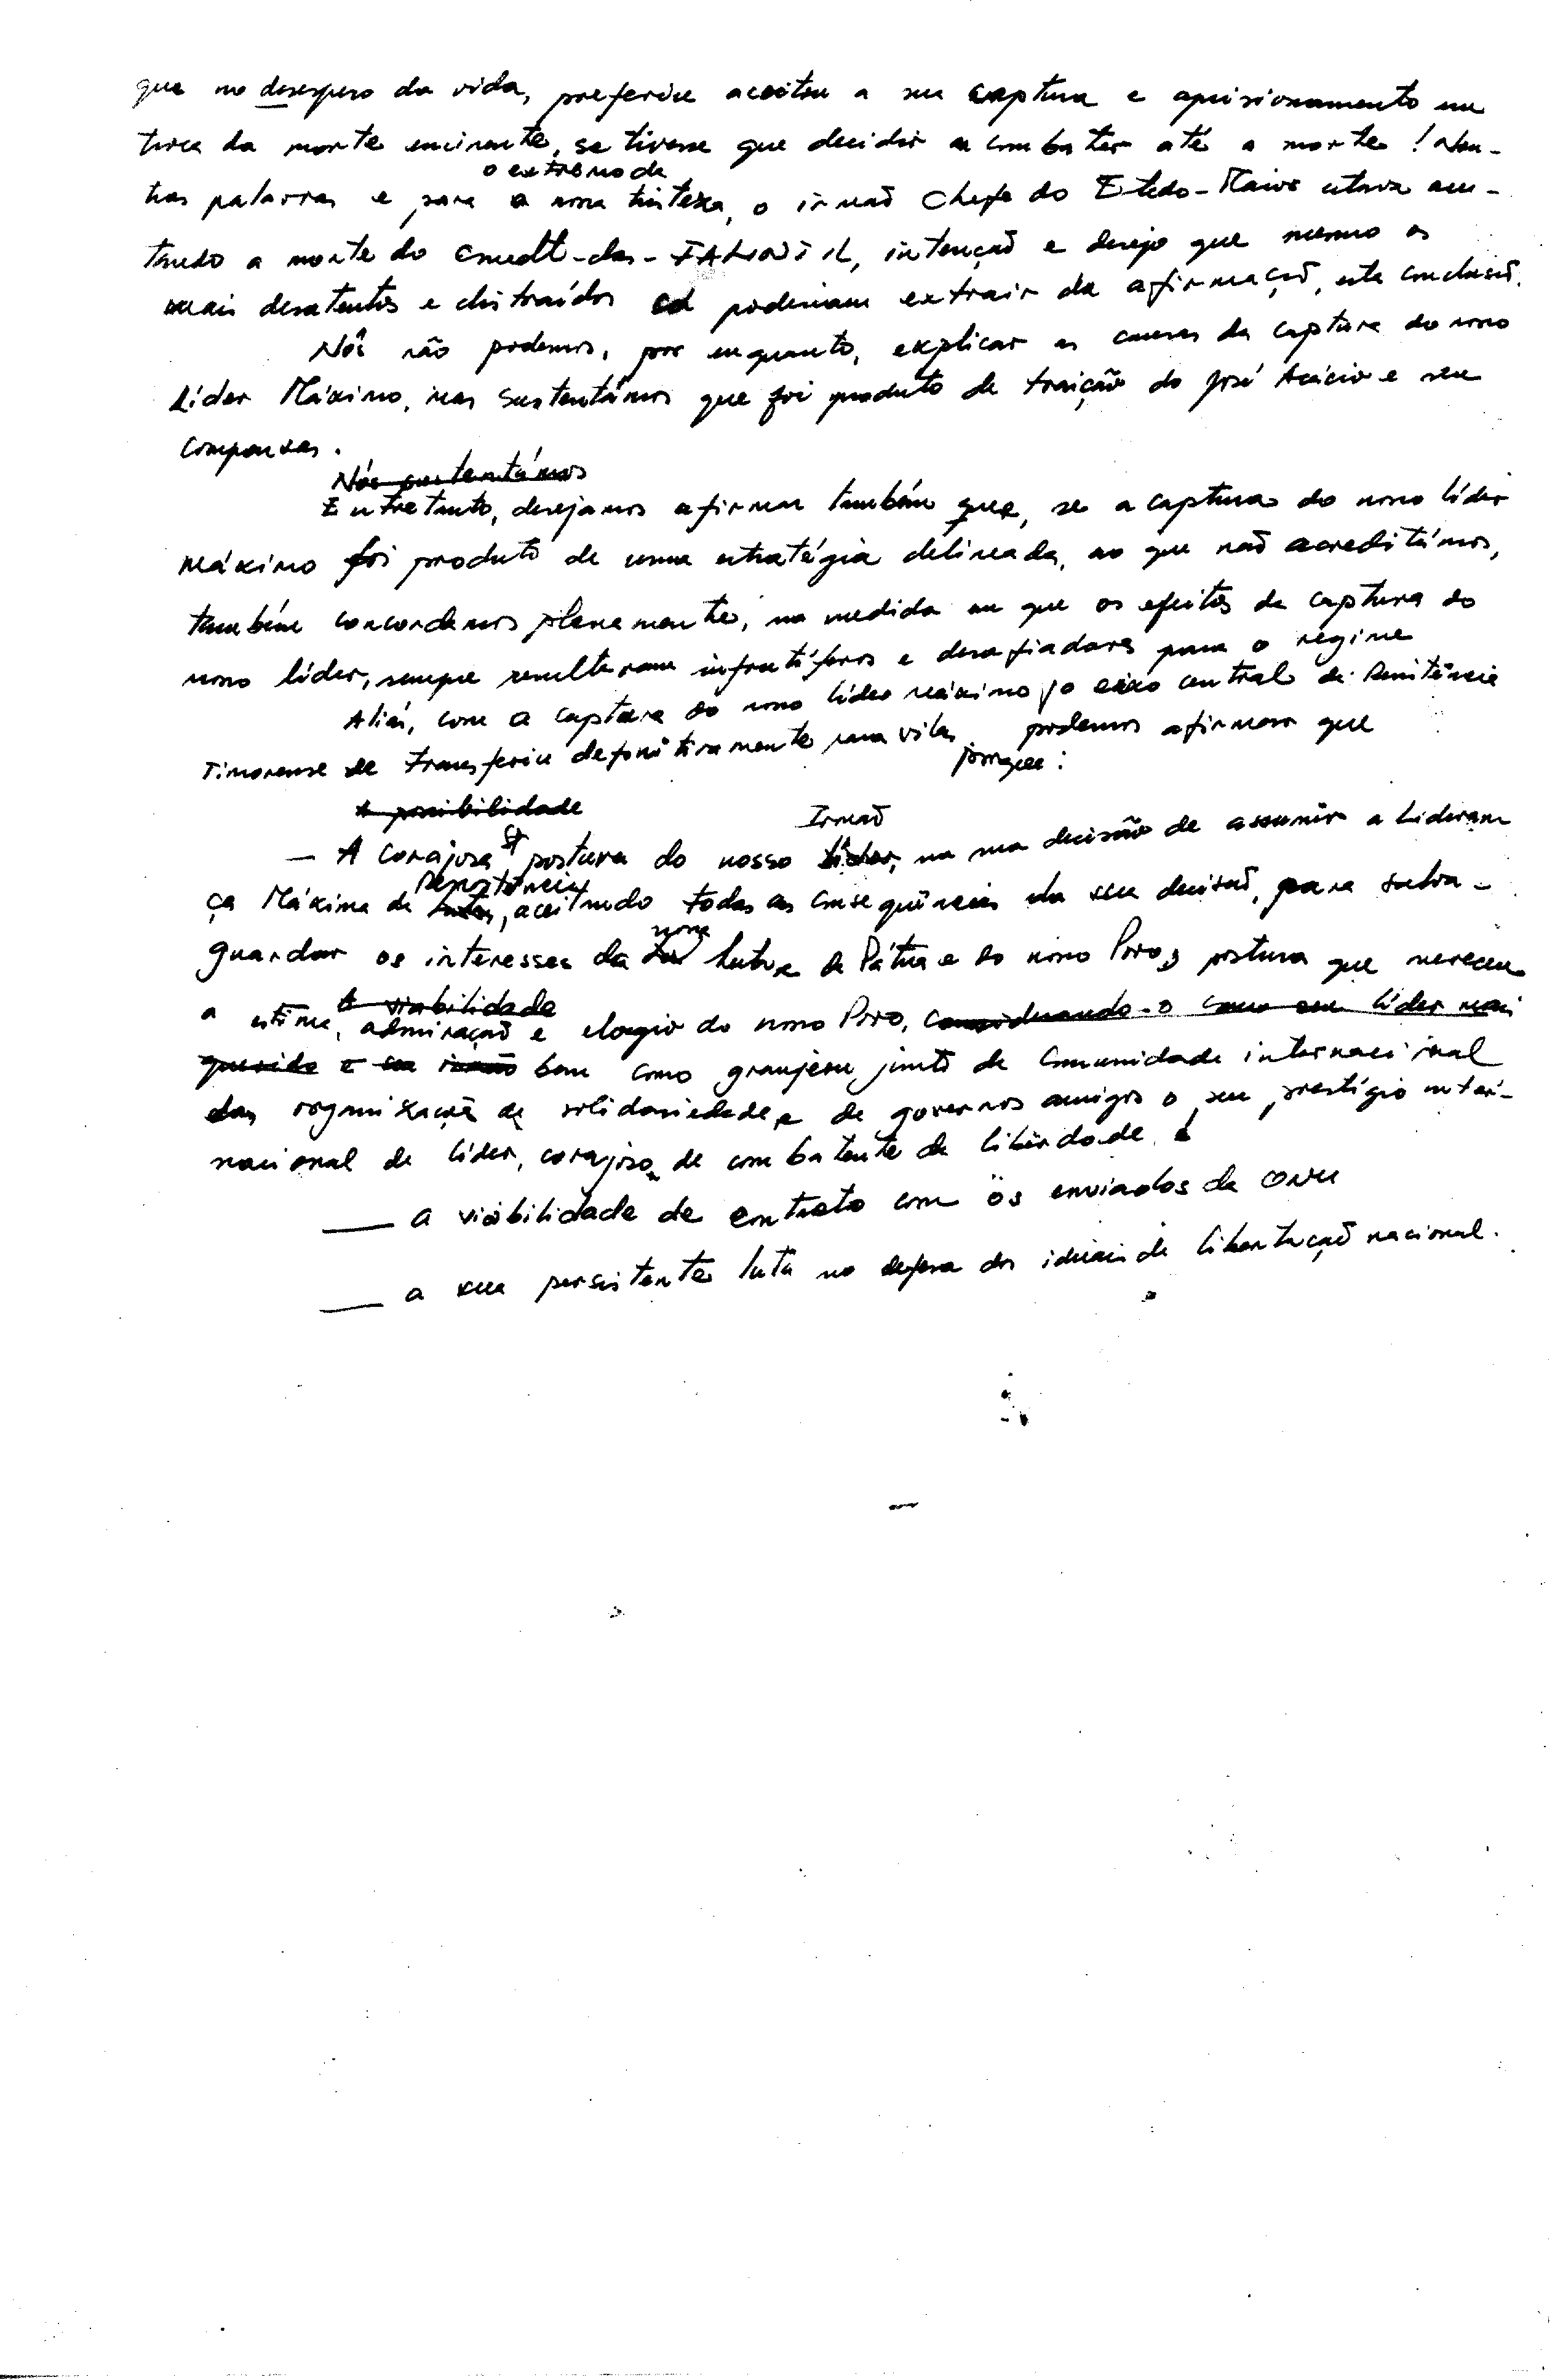 que no desespero da vida, preferiu aceitou a sua captura e aprisionamento em
troca da morte encinante, se tivesse que decidir a combater até a morte! Nou-
tras palavras e para o extremo da nossa tristeza, o irmaõ Chefe do Estado-Maior estava ten-
tando a morte do cmdt-das-FALINTIL, intençaõ e desejo que mesmo os
mais desatentos e distraídos poderiam extrair da afirmaçaõ, esta conclusaõ.
Nós não podemos, por enquanto, explicar as causas da captura do nosso
Líder Máximo, mas sustentámos que foi produto de traição do José Acácio e seus
comparsas.
Nós sustentámos
Entretanto, desejamos afirmar também que, se a captura do nosso líder
máximo foi produto de uma estratégia delineada, ao que naõ acreditámos,
também concordamos plenamente, na medida em que os efeitos da captura do
nosso líder, sempre resultaram infrutíferos e desafiadores para o regime
Aliás, com a captura do nosso líder máximo, o eixo central da Resistência
Timorense se transferiu definitivamente para vilas podemos afirmar que
porque:
A possibilidade
— A corajosa postura do nosso Líder, Irmaõ na sua decisão de assumir a Lideran
ça Máxima de Luta, Resistência aceitando todas as consequências da sua decisaõ, para salva-
guardar os interesses da nossa Luta e da Pátria e do nosso Povo, postura que mereceu
A viabilidade
a estima, admiraçaõ e elogio do nosso Povo, considerando-o como seu líder mais
querido e seu irmaõ bem como granjeou junto da Comunidade internacional
das organizaçoẽs de solidariedade e de governos amigos o seu prestígio inter-
nacional de líder, corajoso e de combatente da liberdade.
— a viabilidade de contato com os enviados da ONU
— a sua persistente luta na defesa dos ideais de libertaçaõ nacional.